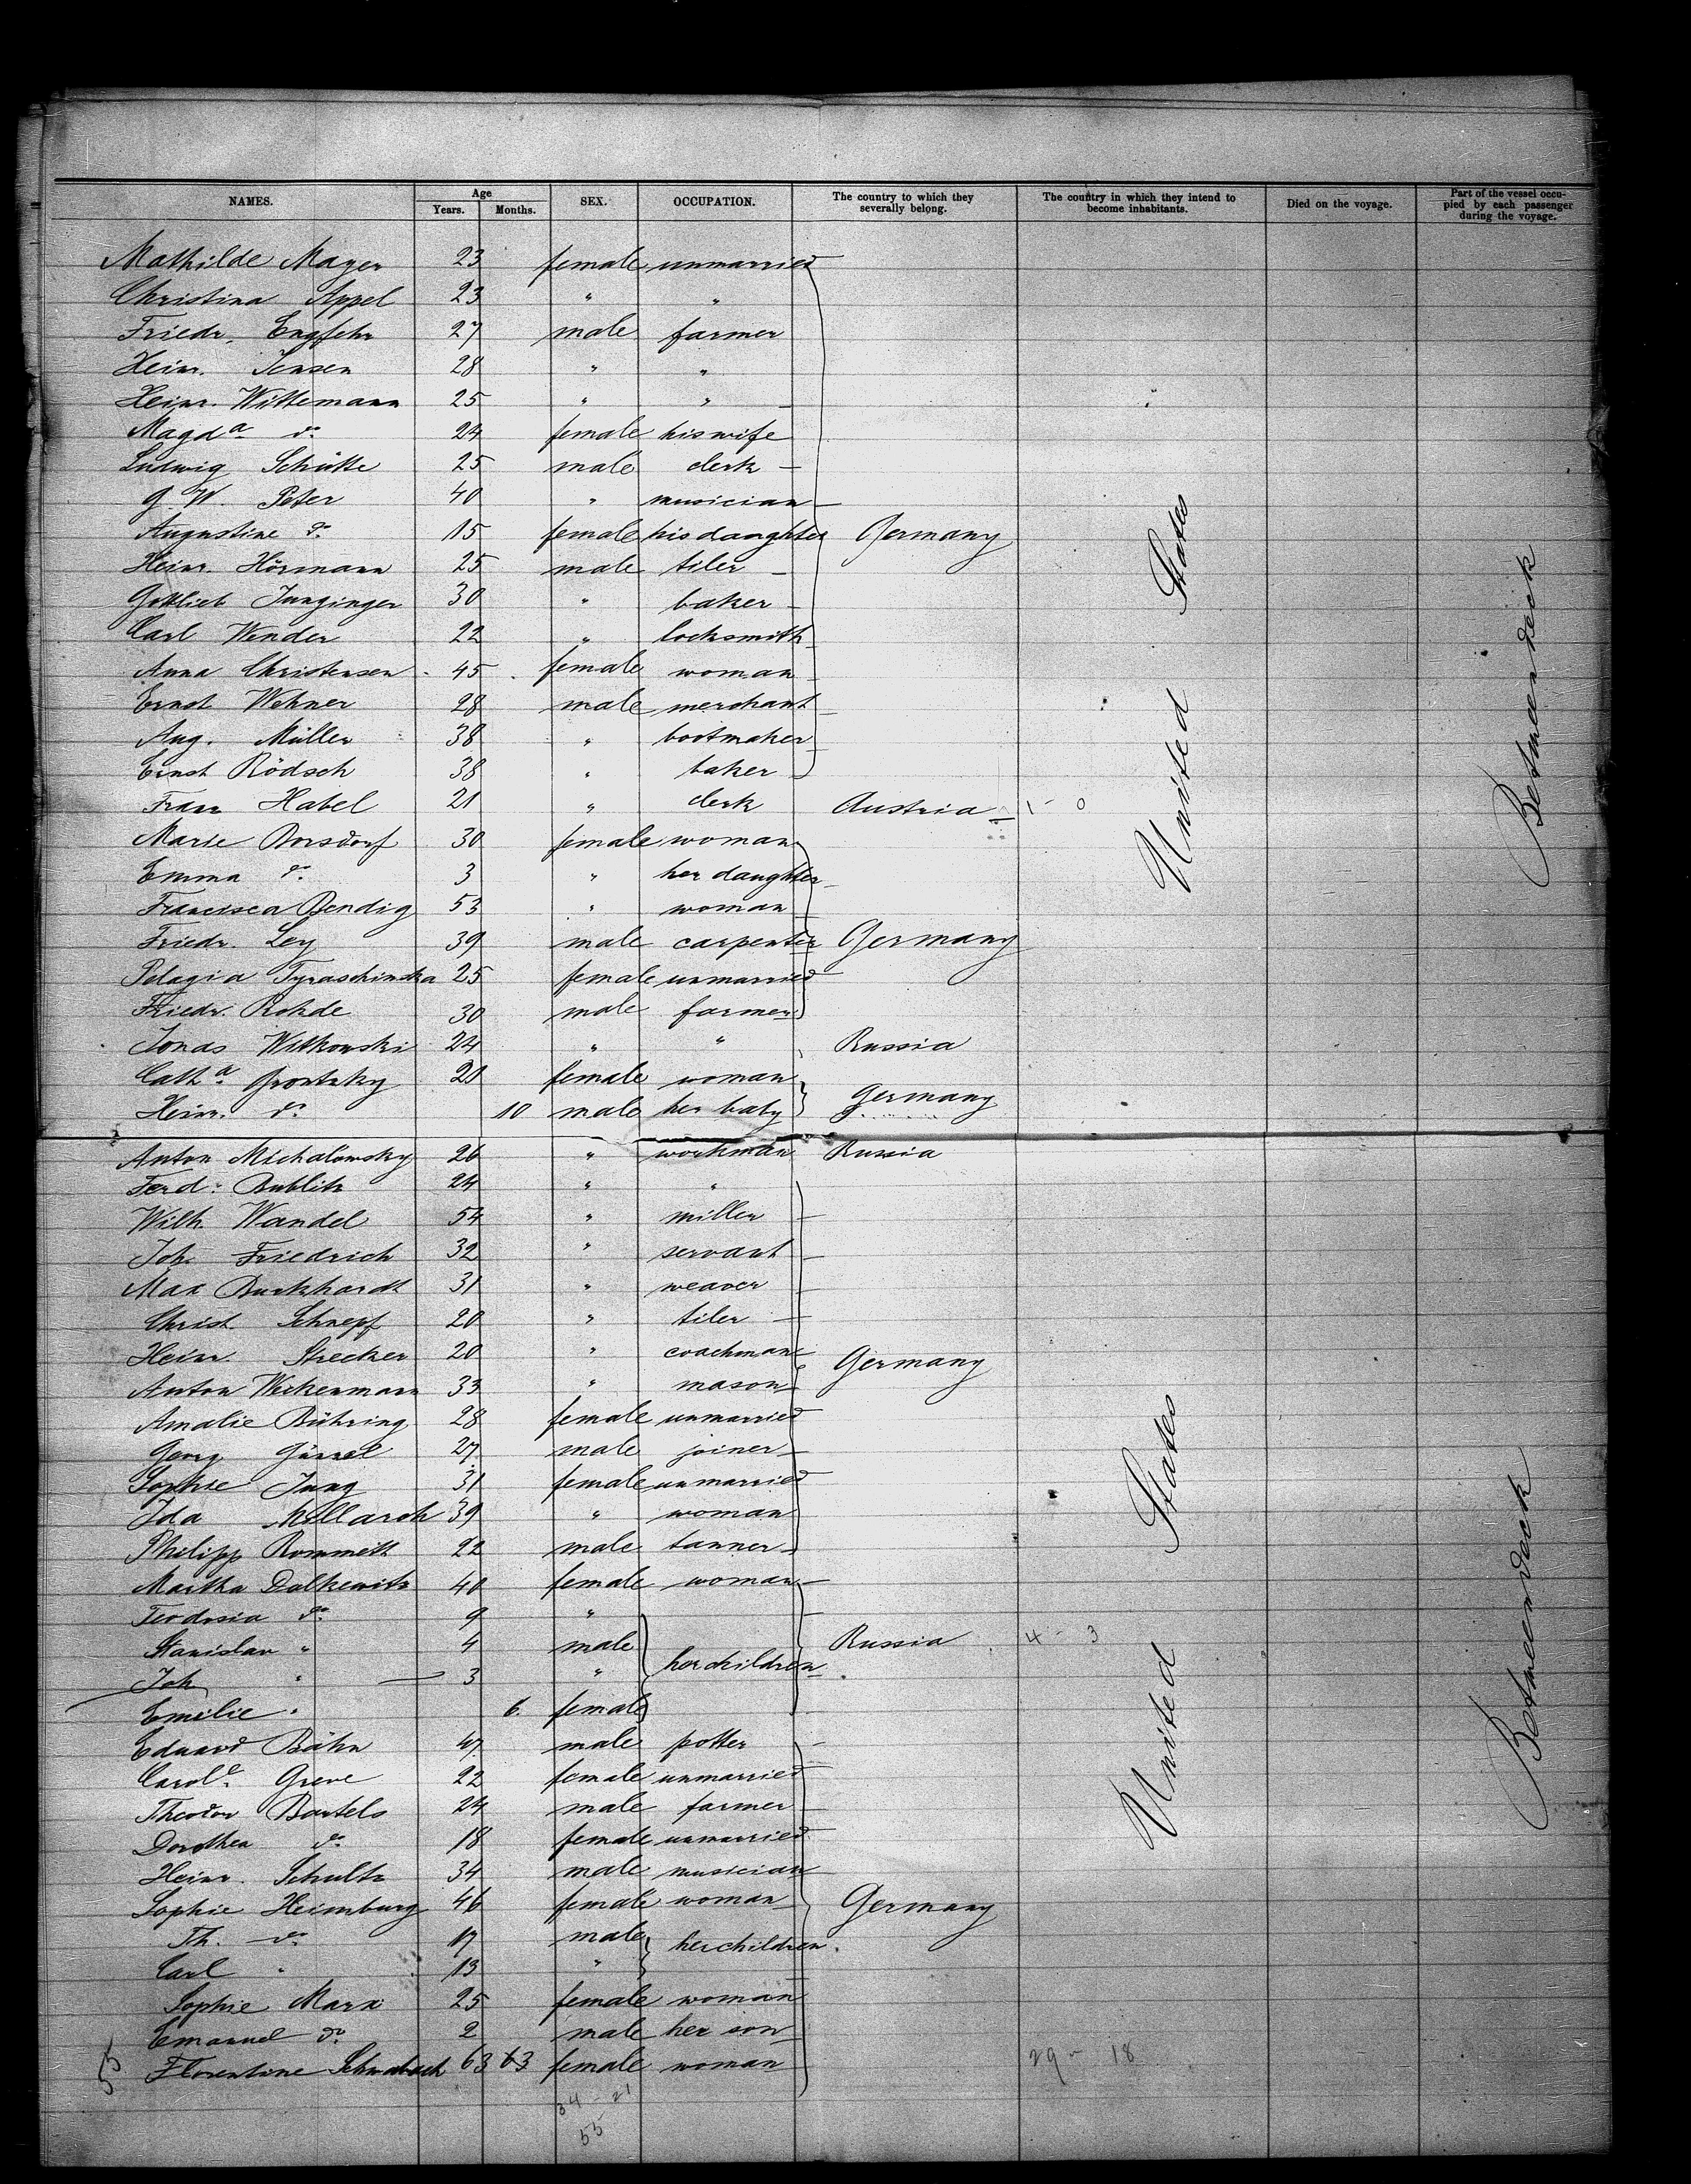 NAMES. Age Years. Months. SEX. OCCUPATION. The country to which they severally belong. The country in which they intend to become inhabitants. Died on the voyage. Part of the vessel occupied by each passenger during the voyage.
Mathilde Mayer 23 female unmarried
Christina Appel 23 " "
Friedr. Engfehr 27 male farmer
Heinr. Jensen 28 " "
Heinr. Wittemann 25 " "
Magda do 24 female his wife
Ludwig Schütte 25 male clerk
G. W. Peter 40 " musician
Augustine do 15 female his daughter Germany
Heinr. Hörmann 25 male tiler
Gottlieb Junginger 30 " baker
Carl Wender 22 " locksmith
Anna Christensen 45 female woman
Ernst Wehner 28 male merchant
Aug. Müller 38 " bootmaker
Ernst Rödsch 38 " baker
Franz Habel 21 " clerk Austria 1 - 0
Marie Borsdorf 30 female woman
Emma do 3 " her daughter
Francisca Bendig 53 " woman
Friedr. Ley 39 male carpenter Germany
Pelagia 25 female unmarried
Friedr. Rohde 30 male farmer
Jonas Witkowski 24 " " Russia
Catha 20 female woman
Heinr. do 10 male her baby Germany
United States
Between deck
Anton Michalowsky 26 " workman Russia
Ferd. Bublitz 24 " "
Wilh. Wandel 54 " miller
Joh. Friedrich 32 " servant
Max Burkhardt 31 " weaver
Christ. Schnepf 20 " tiler
Heinr. Strecker 20 " coachman Germany
Anton Weckenmann 33 " mason
Amalie Bühring 28 female unmarried
Georg 27 male joiner
Sophie Jung 31 female unmarried
Ida 39 " woman
Philipp Rommett 22 male tanner
Martha Dalkewitz 40 female woman
Teodosia do 9 "
Stanislav " 4 male her children Russia 4 - 3
Joh " 3 "
Emilie " 6 female
Eduard Bähn 47 male potter
Carole Greve 22 female unmarried
Theodor Bartels 24 male farmer
Dorothea do 18 female unmarried
Heinr. Schultz 34 male musician
Sophie Heimburg 46 female woman Germany
Th. do 17 male her children
Carl " 13 "
Sophie Marx 25 female woman
Emanuel do 2 male her son
55 Florentine Schwabach 63 63 female woman 29 - 18
34 - 21
55
United States
Between deck